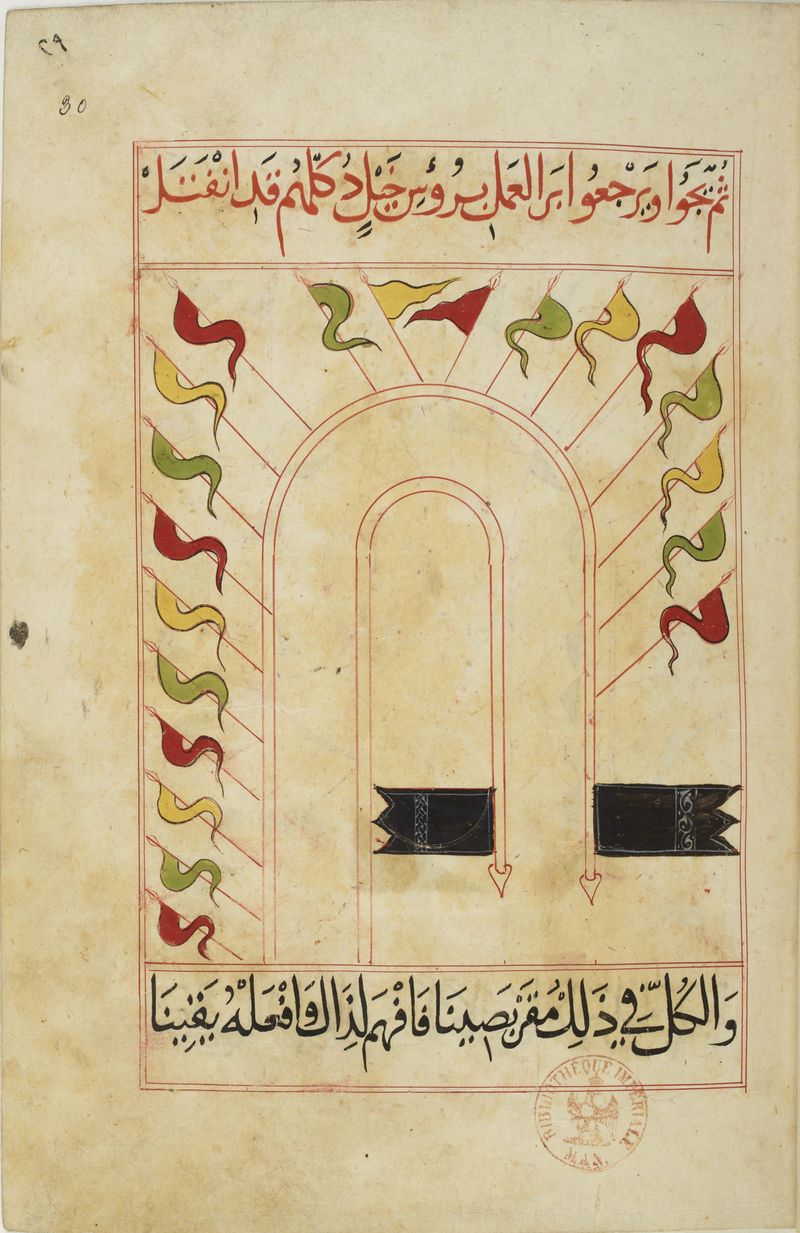 ٢٩
30
ثم يجوا ويرجعوا برا العمل بروس خيل كلهم قد انفتل
والكل في ذلك مقربصينا فافهم لذاك وافعله يقينا
BIBLIOTHÈQUE IMPÉRIALE
MAN.